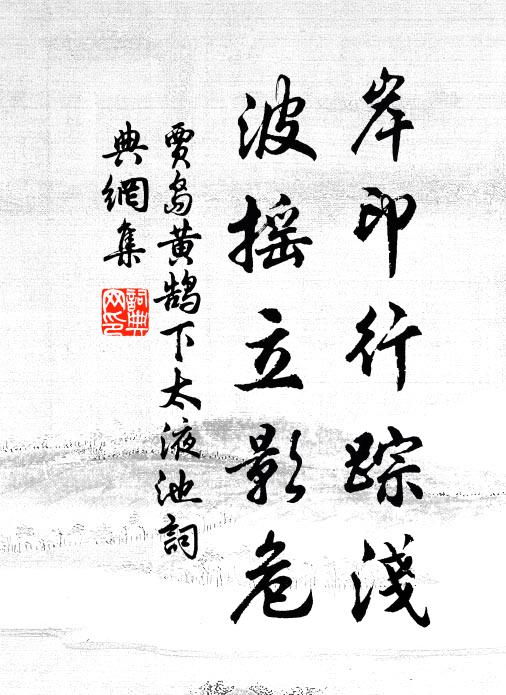 岸印行踪淺
波摇立影危
賈島黄鵠下太液池詞
典網集
詞典網印